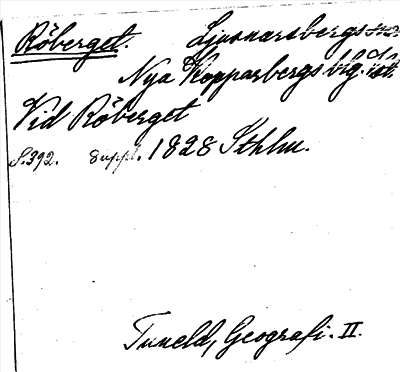 Röberget. Ljusnarsbergs sn.
Nya Kopparbergs blg.
Vid Röberget
S. 392. Suppl. 1828 Sthlm.
Tuneld, Geografi. II.